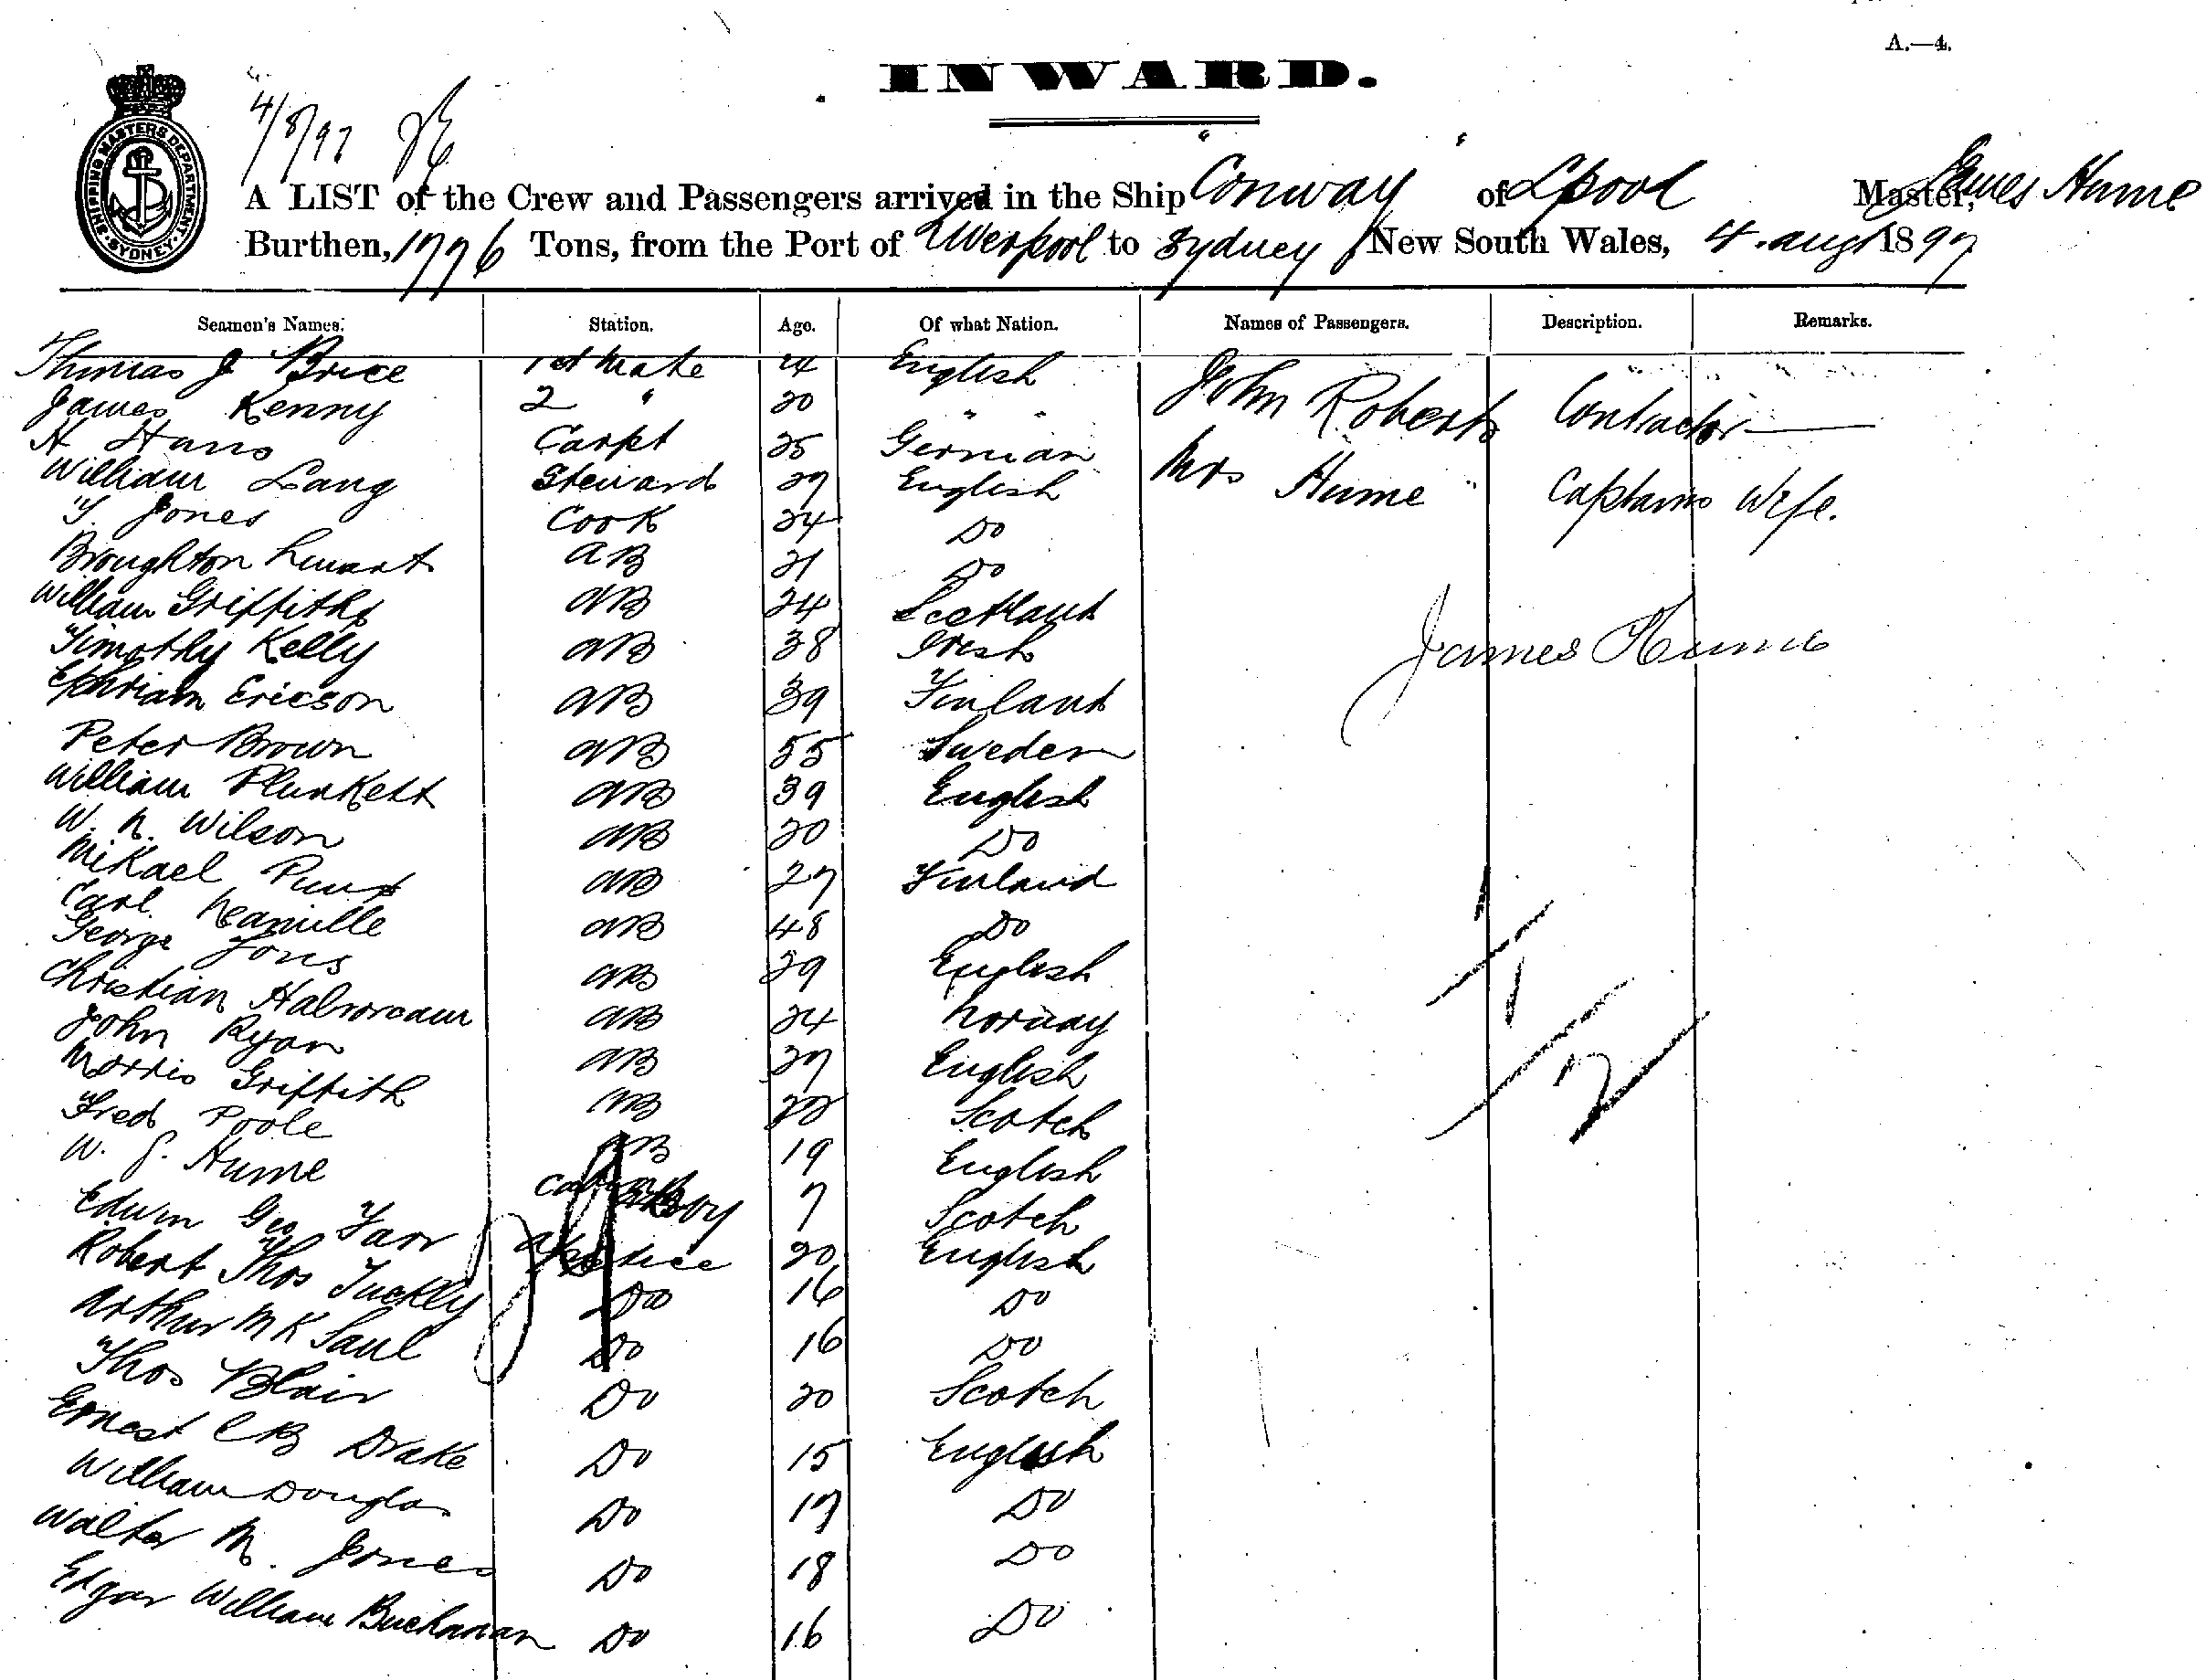 A.—4.
INWARD.
SHIPPING MASTERS DEPARTMENT. SYDNEY.
4/8/97
A LIST of the Crew and Passengers arrived in the Ship "Conway" of Lpool Master, James Hume
Burthen, 1776 Tons, from the Port of Liverpool to Sydney New South Wales, 4. augt 1897
Seamen's Names. Station. Age. Of what Nation. Names of Passengers. Description. Remarks.
Thomas J Brice 1st Mate 24 English John Roberts Contractor
James Kenny 2 " 20 " "
H Hans Carpt 25 German Mrs Hume Captains Wife.
William Lang Steward 27 English
T. Jones Cook 24 Do
Broughton AB 21 Do
William Griffiths AB 24 Scotland
Timothy Kelly AB 38 Irish James Hume
Ephriam Ericson AB 39 Finland
Peter Brown AB 55 Sweden
William Plunkett AB 39 English
W. N. Wilson AB 20 Do
Mikael AB 27 Finland
Carl AB 48 Do
George AB 29 English
Christian AB 24 Norway
John Ryan AB 27 English
Morris Griffith AB 22 Scotch
Fred Poole AB 19 English
W. J. Hume Cabin Boy 7 Scotch
Edwin Geo Apptice 20 English
Robert Thos Tuckly Do 16 Do
Arthur McK Saul Do 16 Do
Thos Blair Do 20 Scotch
Ernest C B Drake Do 15 English
William Douglas Do 17 Do
Walter M. Jones Do 18 Do
Edgar William Buchanan Do 16 Do
1
1
2